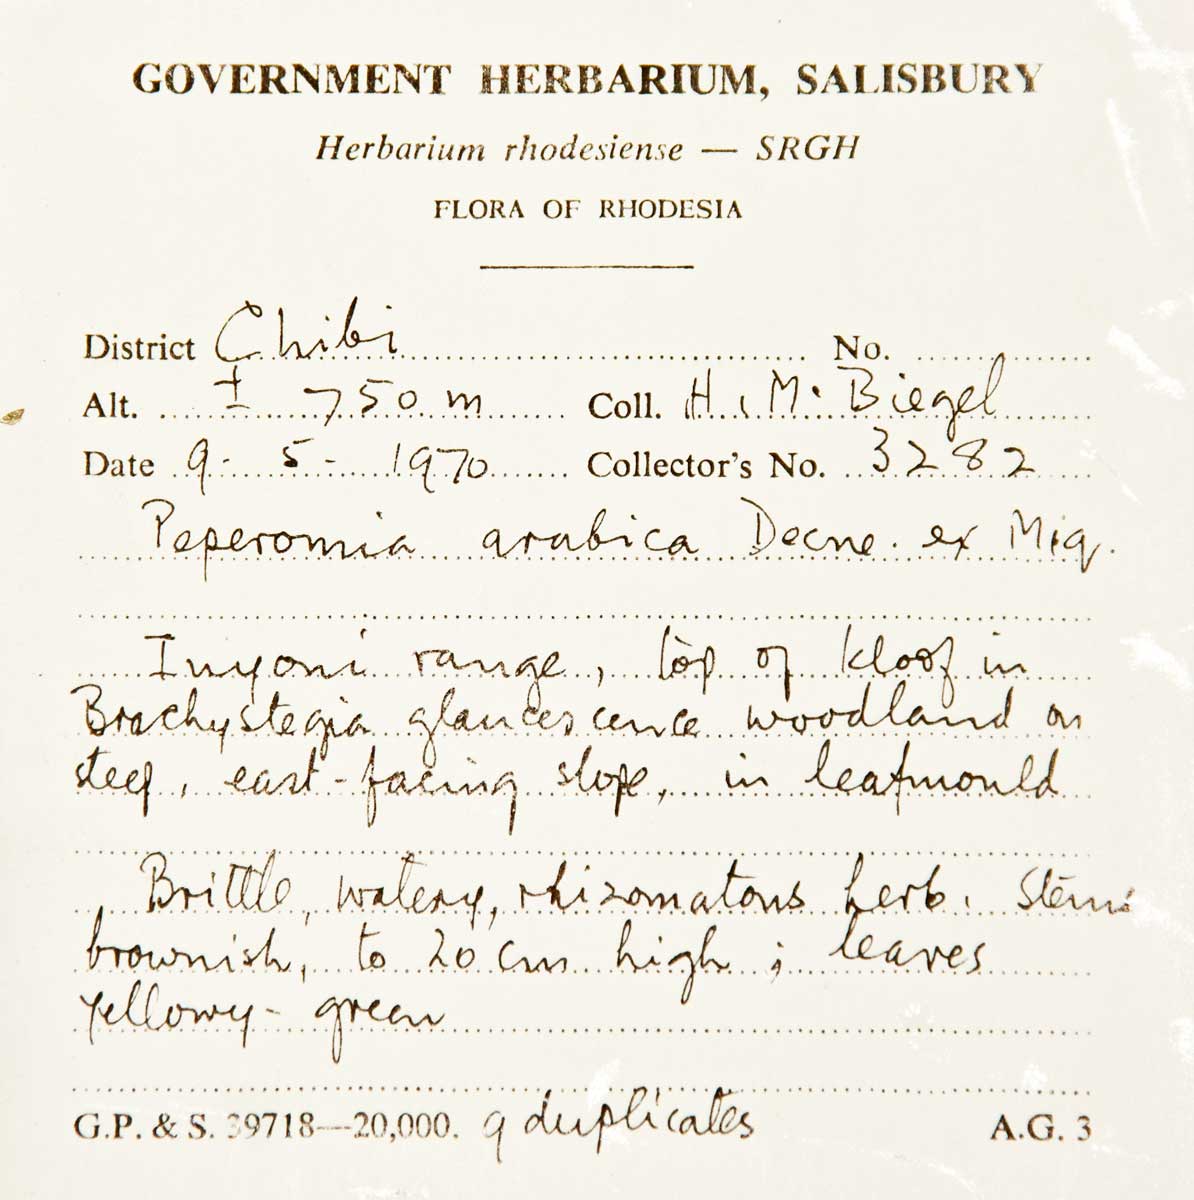 GOVERNMENT HERBARIUM, SALISBURY
Herbarium rhodesiense — SRGH
FLORA OF RHODESIA
District Chibi No.
Alt. ± 750 m Coll. H. M. Biegel
Date 9 - 5 - 1970 Collector's No. 3282
Peperomia arabica Decne. ex Miq.
Inyoni range, top of kloof in
Brachystegia glaucescence woodland on
steep, east-facing slope, in leafmould
Brittle, watery, rhizomatous herb. Stems
brownish, to 20 cm high; leaves
yellowy-green
G.P. & S. 39718—20,000. 9 duplicates A.G. 3